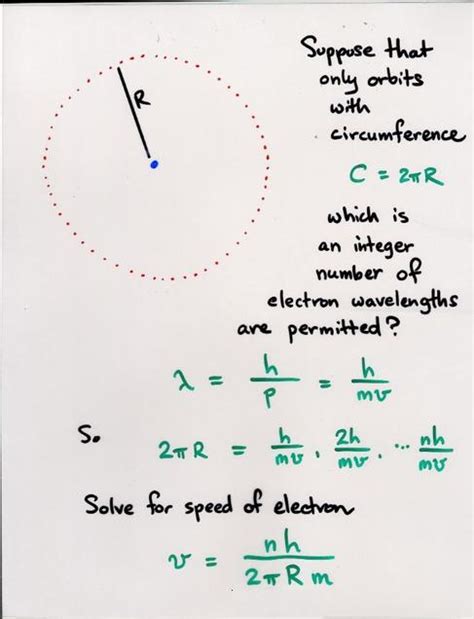 R
Suppose that
only orbits
with
circumference
C = 2πR
which is
an integer
number of
electron wavelengths
are permitted?
λ = h/p = h/mv
So 2πR = h/mv, 2h/mv, ... nh/mv
Solve for speed of electron
v = nh/2πRm